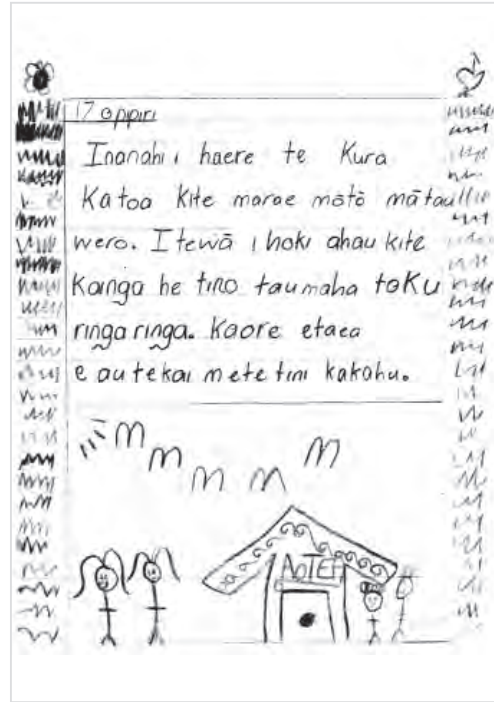 17 oppiri
Inanahi i haere te Kura
Katoa kite marae mōtō mātau
wero. I tewā i hoki ahau kite
Kainga he tino taumaha toku
ringaringa. Kaore etaea
e au tekai me te tini kakahu.
AOTEA